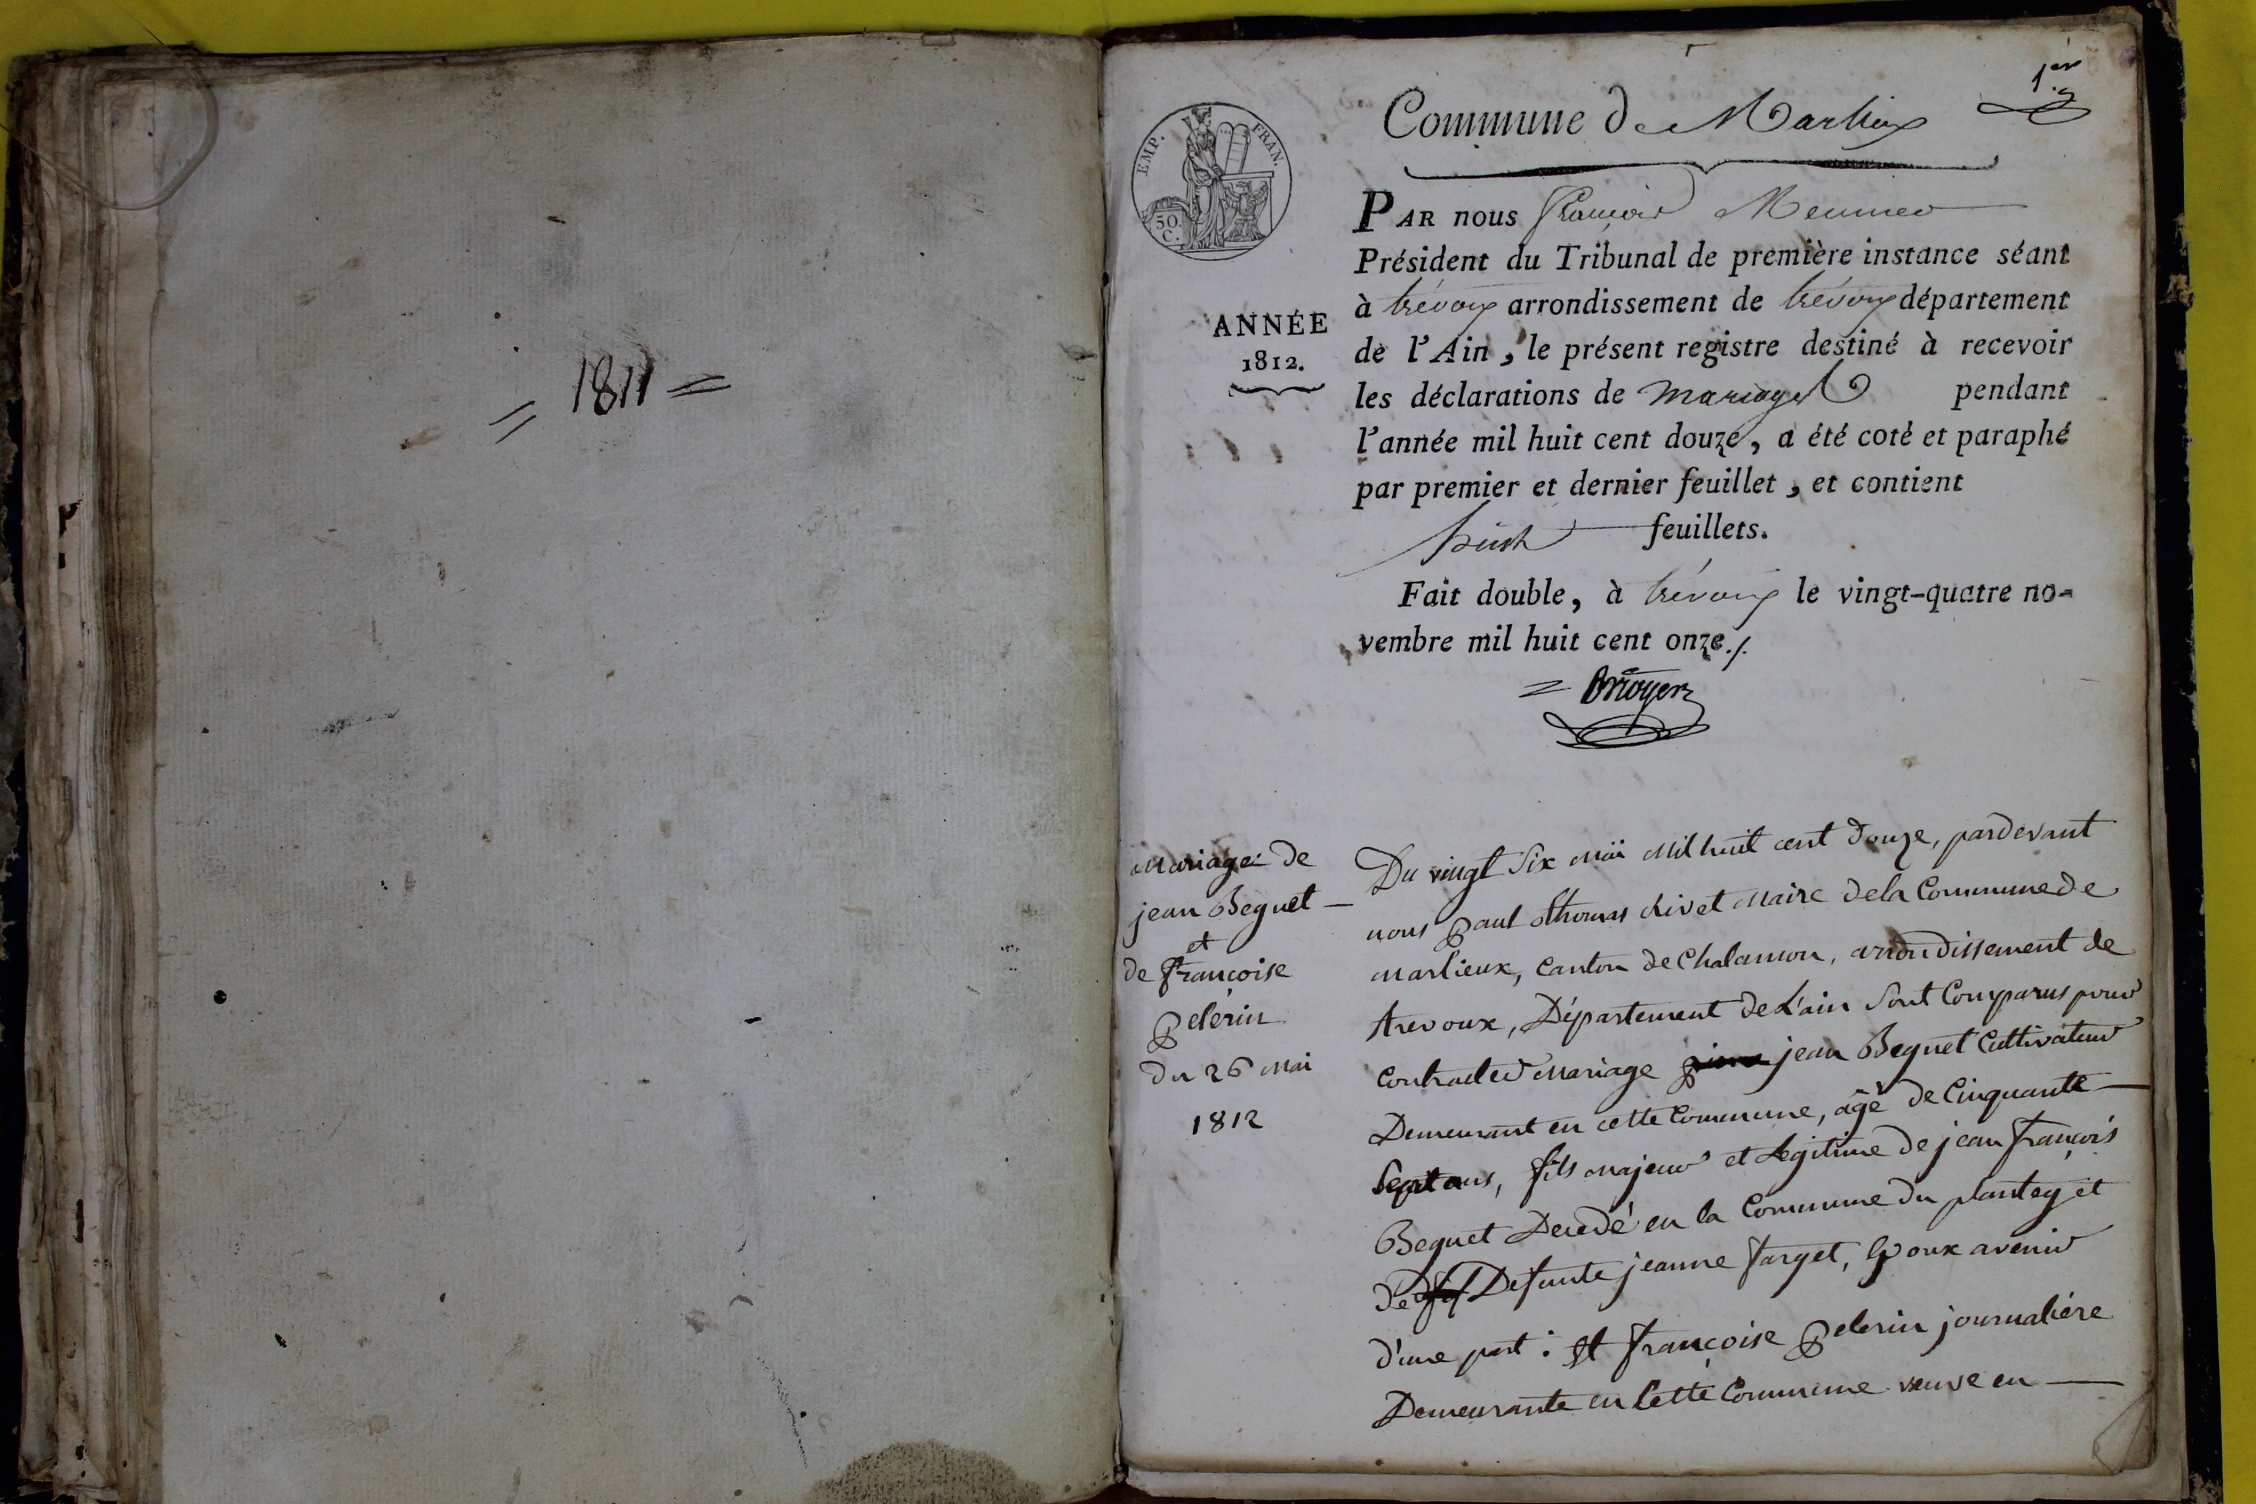 = 1811 =
1er
Commune de Marlieux
EMP. FRAN.
50. C.
ANNÉE
1812.
PAR nous François Meunier
Président du Tribunal de première instance séant
à trévoux arrondissement de trévoux département
de l'Ain, le présent registre destiné à recevoir
les déclarations de mariages pendant
l'année mil huit cent douze, a été coté et paraphé
par premier et dernier feuillet, et contient
huit feuillets.
Fait double, à trévoux le vingt-quatre no-
vembre mil huit cent onze./.
Mariage de
jean Beguet —
et
de françoise
pelérin
du 26 Mai
1812
Du vingt Six Mai Mil huit cent Douze, pardevant
nous paul thomas Rivet Maire dela Commune de
Marlieux, Canton de Chalamon, arrondissement de
trevoux, Département de L'ain Sont Comparus pour
Contracter Mariage jean Beguet Cultivateur
Demeurant en cette Commune, âgé de Cinquante —
Sept ans, fils majeur et Légitime de jean françois
Beguet Decedé en la Commune du plantay et
de Defunte jeanne farget, Epoux avenir
d'une part : Et françoise pelerin journaliére
Demeurante en Cette Commune veuve en —